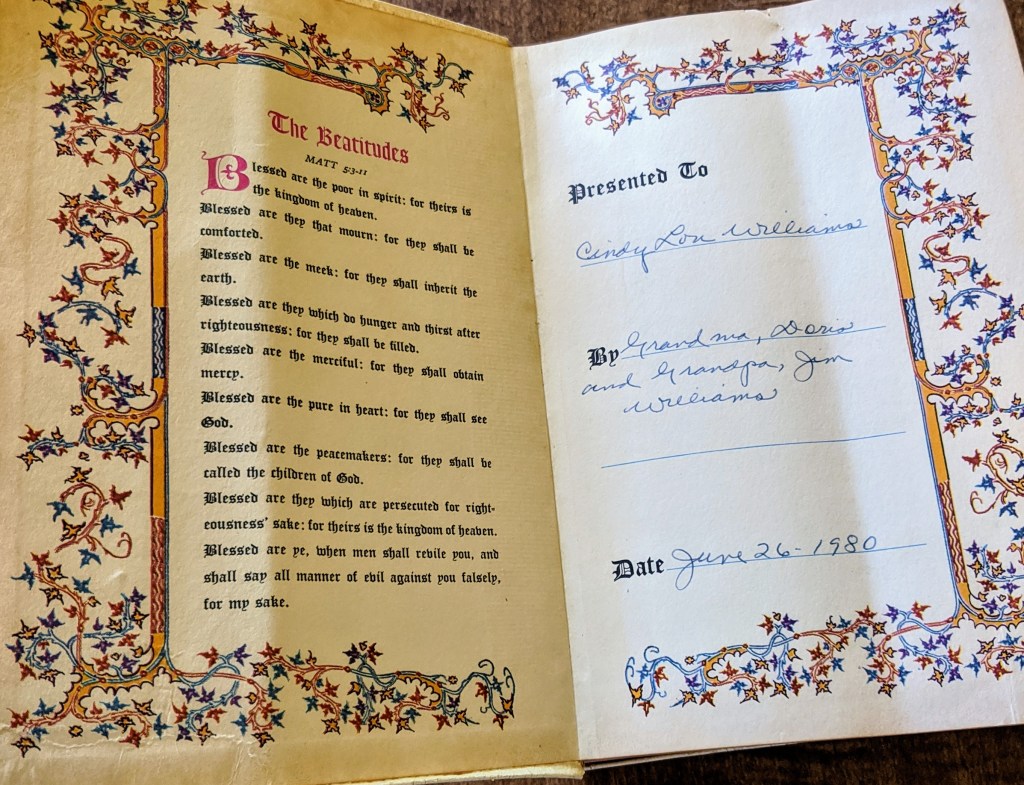 The Beatitudes
MATT 5:3-11
Blessed are the poor in spirit: for theirs is
the kingdom of heaven.
Blessed are they that mourn: for they shall be
comforted.
Blessed are the meek: for they shall inherit the
earth.
Blessed are they which do hunger and thirst after
righteousness: for they shall be filled.
Blessed are the merciful: for they shall obtain
mercy.
Blessed are the pure in heart: for they shall see
God.
Blessed are the peacemakers: for they shall be
called the children of God.
Blessed are they which are persecuted for right-
eousness' sake: for theirs is the kingdom of heaven.
Blessed are ye, when men shall revile you, and
shall say all manner of evil against you falsely,
for my sake.
Presented To
Cindy Lou Williams
By Grandma, Doris
and Grandpa, Jim
Williams
Date June 26-1980